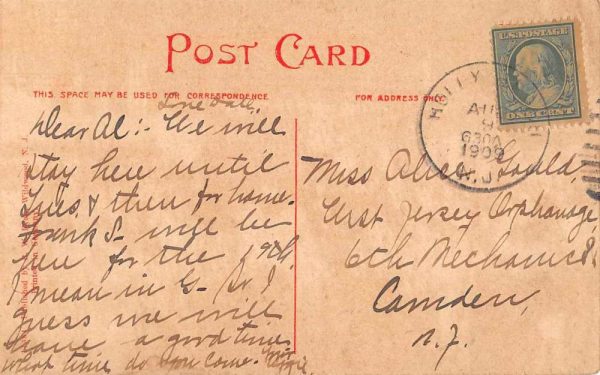 POST CARD
THIS SPACE MAY BE USED FOR CORRESPONDENCE
FOR ADDRESS ONLY
U.S. POSTAGE
ONE CENT
HOLLY
AU
9
630A
1909
N.J.
Dear Al:- We will
stay here until
Tues. & then for home.
Frank S. will be
here for the 19th,
I mean in G. So I
guess we will
have a good time.
What time do you come.
Miss Alice Gould,
West Jersey Orphanage,
6th Mechanic St.
Camden,
N.J.
Wildwood, N. J.